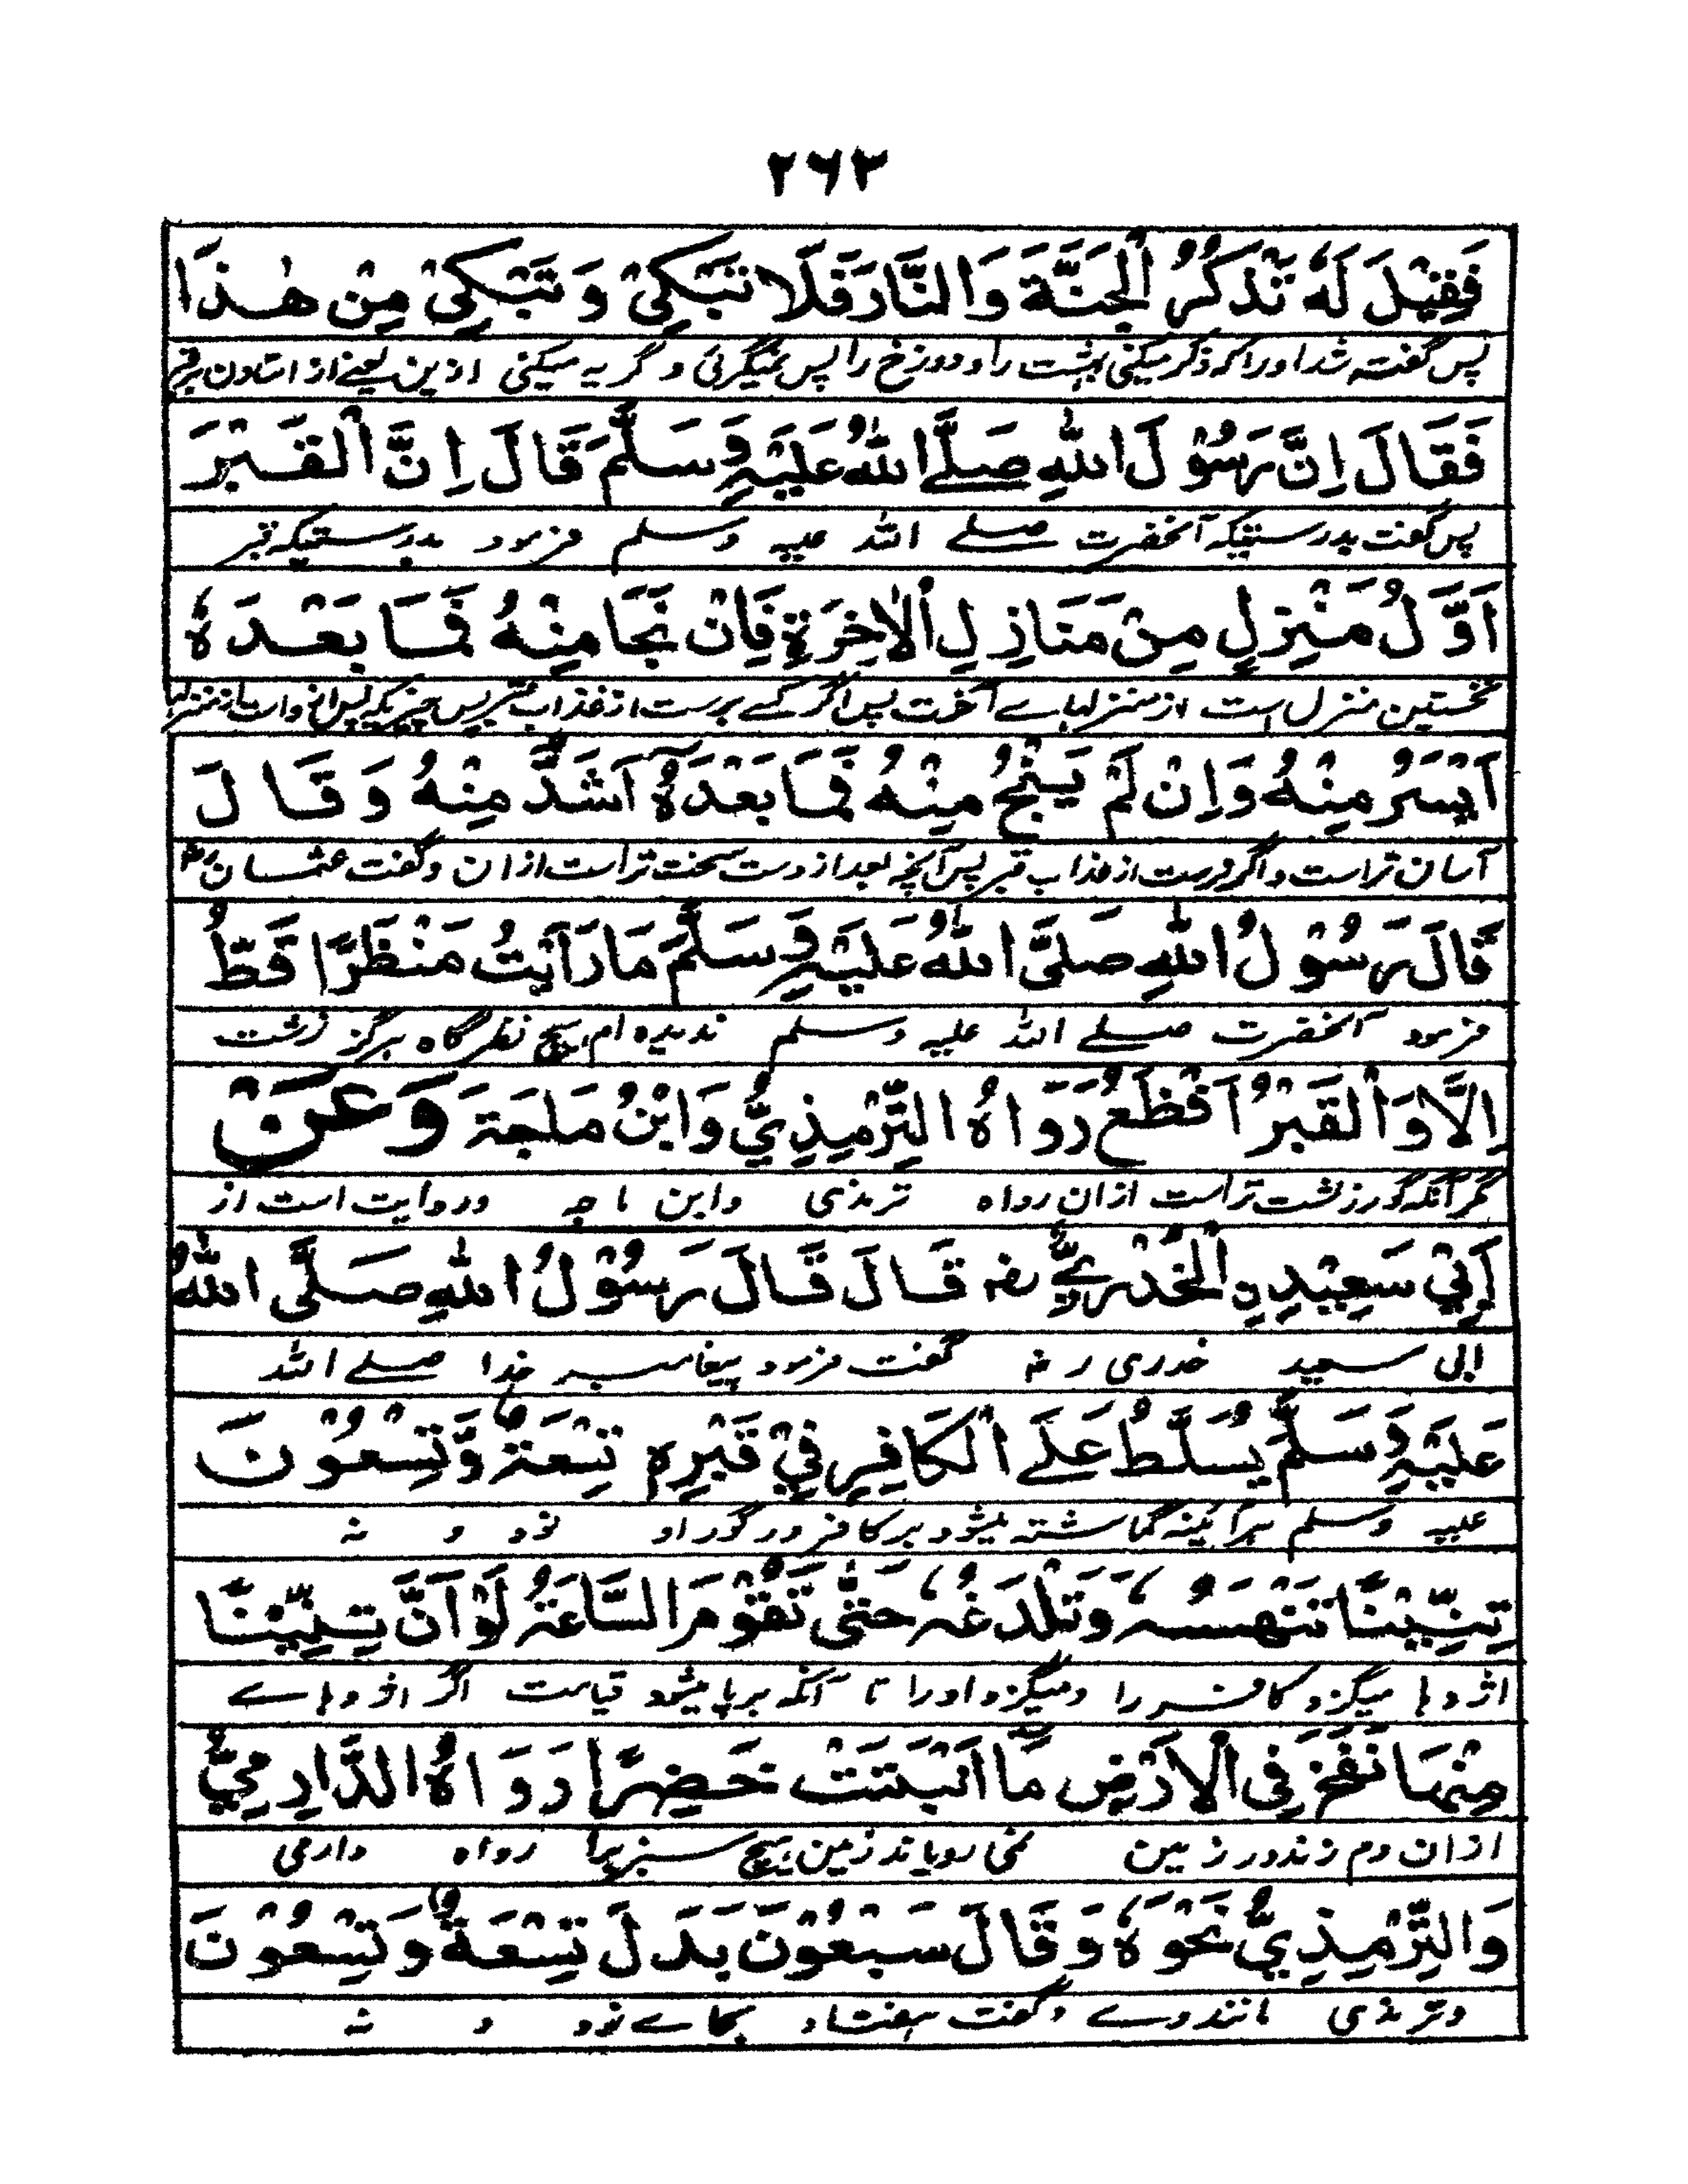 ٢٦٣
فَقِيْلَ لَهٗ تَذْكُرُ الْجَنَّةَ وَالنَّارَ فَلَا تَبْكِيْ وَتَبْكِيْ مِنْ هٰذَا
پس گفته شد اورا که ذکر میکنی بهشت را و دوزخ را پس نمیگرئی و گریه میکنی ازین یعنے از استادن قبر
فَقَالَ اِنَّ رَسُوْلَ اللهِ صَلَّے اللهُ عَلَيْهِ وَسَلَّمَ قَالَ اِنَّ الْقَبْرَ
پس گفت بدرستیکه آنحضرت صلے الله علیه وسلم فرمود بدرستیکه قبر
اَوَّلُ مَنْزِلٍ مِنْ مَنَازِلِ الْاٰخِرَةِ فَاِنْ نَجَا مِنْهُ فَمَا بَعْدَهٗ
نخستین منزل است از منزلهاے آخرت پس اگر کسے برست از عذاب قبر پس چیزیکه پس از وے است از منزلها
اَيْسَرُ مِنْهُ وَاِنْ لَمْ يَنْجُ مِنْهُ فَمَا بَعْدَهٗ اَشَدُّ مِنْهُ وَقَالَ
آسان تر است و اگر نرست از عذاب قبر پس آنچه بعد از وست سخت تر است از ان و گفت عثمان رض
قَالَ رَسُوْلُ اللهِ صَلَّى اللهُ عَلَيْهِ وَسَلَّمَ مَا رَاَيْتُ مَنْظَرًا قَطُّ
فرمود آنحضرت صلے الله علیه وسلم ندیده ام هیچ نظر گاه هرگز زشت
اِلَّا وَالْقَبْرُ اَفْظَعُ رَوَاهُ التِّرْمِذِيُّ وَابْنُ مَاجَةَ وَعَنْ
مگر آنکه گور زشت تر است ازان رواه ترمذی وابن ماجه و روایت است از
اَبِيْ سَعِيْدِ نِ الْخُدْرِيِّ رض قَالَ قَالَ رَسُوْلُ اللهِ صَلَّى اللهُ
ابی سعید خدری رض گفت فرمود پیغامبر خدا صلے الله
عَلَيْهِ وَسَلَّمَ يُسَلَّطُ عَلَے الْكَافِرِ فِيْ قَبْرِهٖ تِسْعَةٌ وَّتِسْعُوْنَ
علیه وسلم هرآئینه گماشته میشود بر کافر در گور او نود و نه
تِنِّيْنًا تَنْهَسُهٗ وَتَلْدَغُهٗ حَتّٰى تَقُوْمَ السَّاعَةُ لَوْ اَنَّ تِنِّيْنًا
اژدها میگزد کافر را و میگزد اورا تا آنکه برپا میشود قیامت اگر اژدهاے
مِنْهَا نَفَخَ فِى الْاَرْضِ مَا اَنْبَتَتْ خَضِرًا رَوَاهُ الدَّارِمِيُّ
ازان دم زند در زمین نمی رویاند زمین هیچ سبزه را رواه دارمی
وَالتِّرْمِذِيُّ نَحْوَهٗ وَقَالَ سَبْعُوْنَ بَدَلَ تِسْعَةٌ وَتِسْعُوْنَ
وترمذی مانند وے و گفت هفتاد بجاے نود و نه